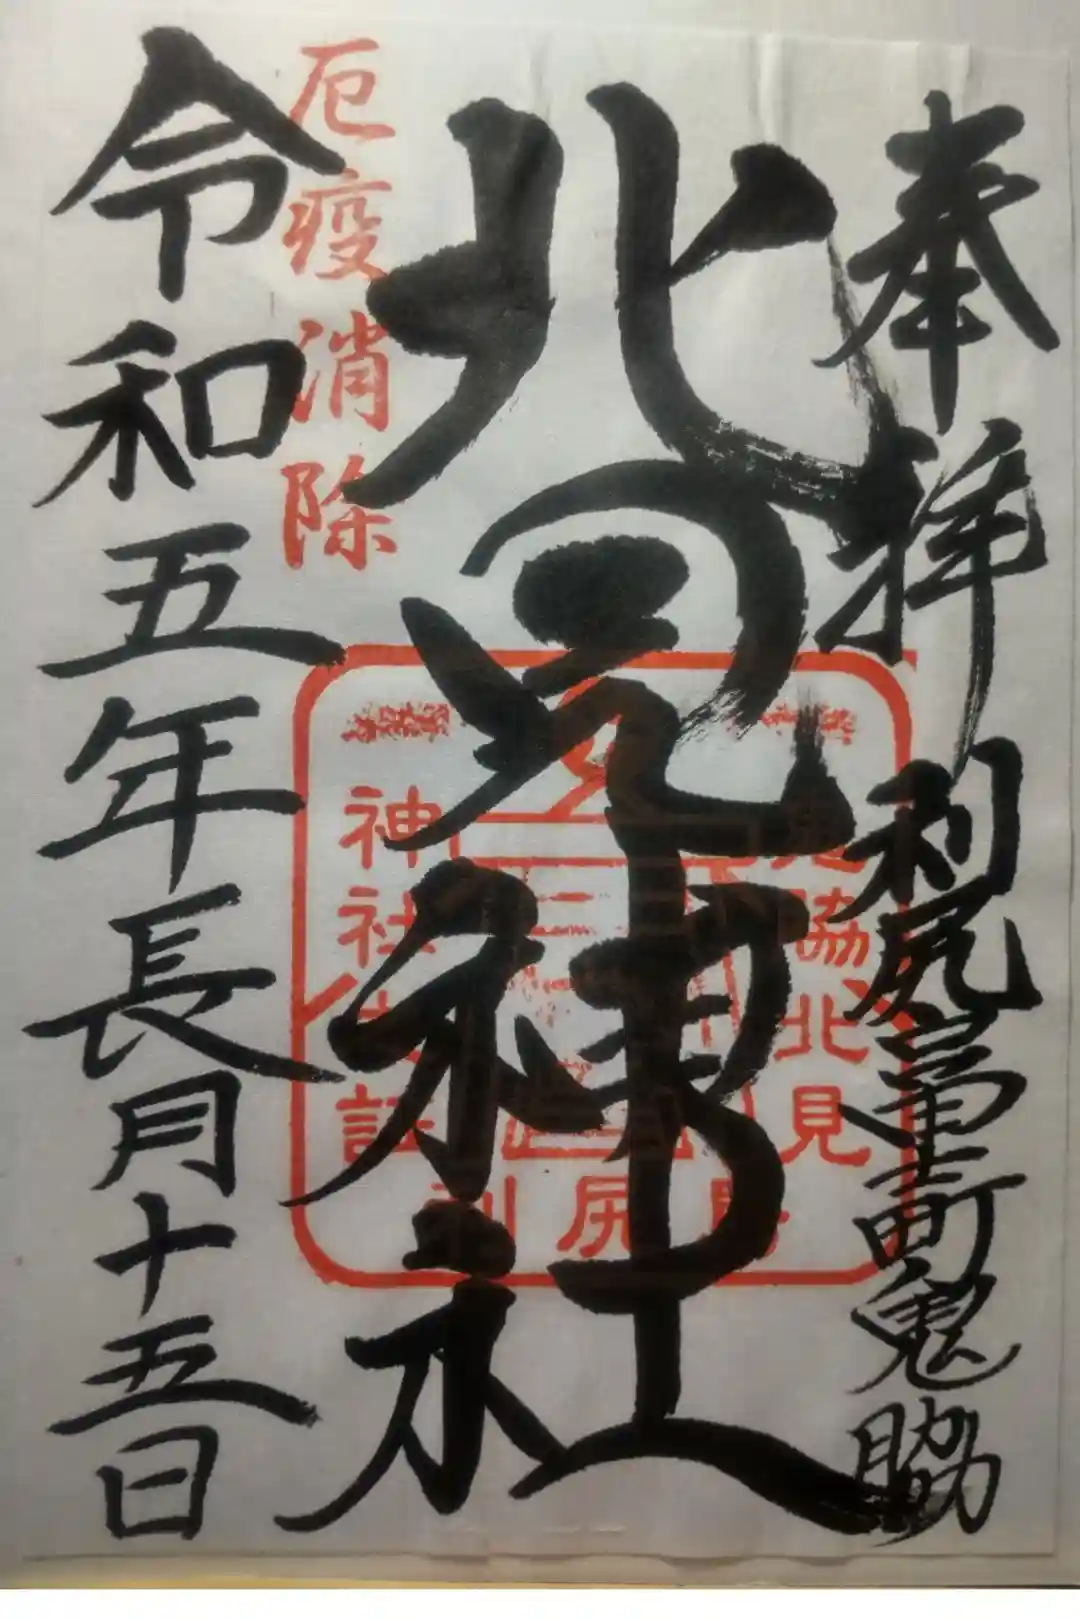 奉拝 利尻富士町鬼脇
北見神社
厄疫消除
令和五年長月十五日
鬼脇北見
神社
利尻島